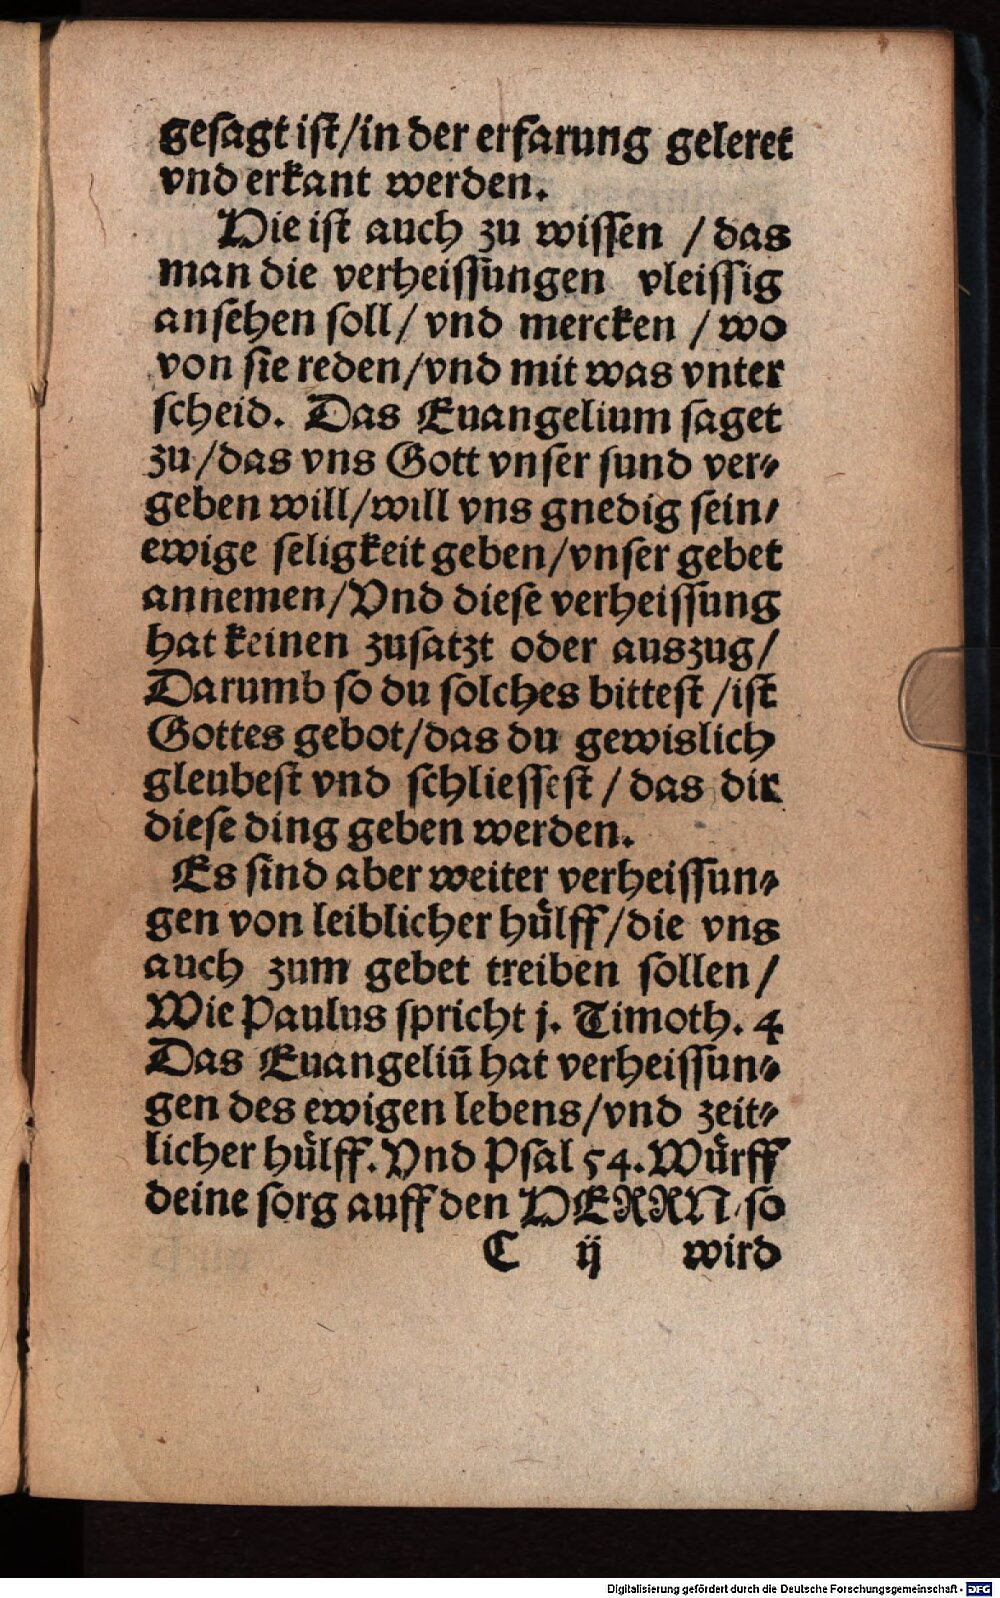 gesagt ist/in der erfarung geleret
vnd erkant werden.
Hie ist auch zu wissen /das
man die verheissungen vleissig
ansehen soll/ vnd mercken /wo
von sie reden/vnd mit was vnter
scheid. Das Euangelium saget
zu/das vns Gott vnser sund ver⸗
geben will/will vns gnedig sein/
ewige seligkeit geben/vnser gebet
annemen/Vnd diese verheissung
hat keinen zusatzt oder auszug/
Darumb so du solches bittest /ist
Gottes gebot/das du gewislich
gleubest vnd schliessest / das dir
diese ding geben werden.
Es sind aber weiter verheissun⸗
gen von leiblicher huͤlff/die vns
auch zum gebet treiben sollen/
Wie Paulus spricht j. Timoth. 4
Das Euangeliū hat verheissun⸗
gen des ewigen lebens/vnd zeit⸗
licher huͤlff. Vnd Psal 54. Wuͤrff
deine sorg auff den HERRN so
C ij wird
Digitalisierung gefördert durch die Deutsche Forschungsgemeinschaft - DFG